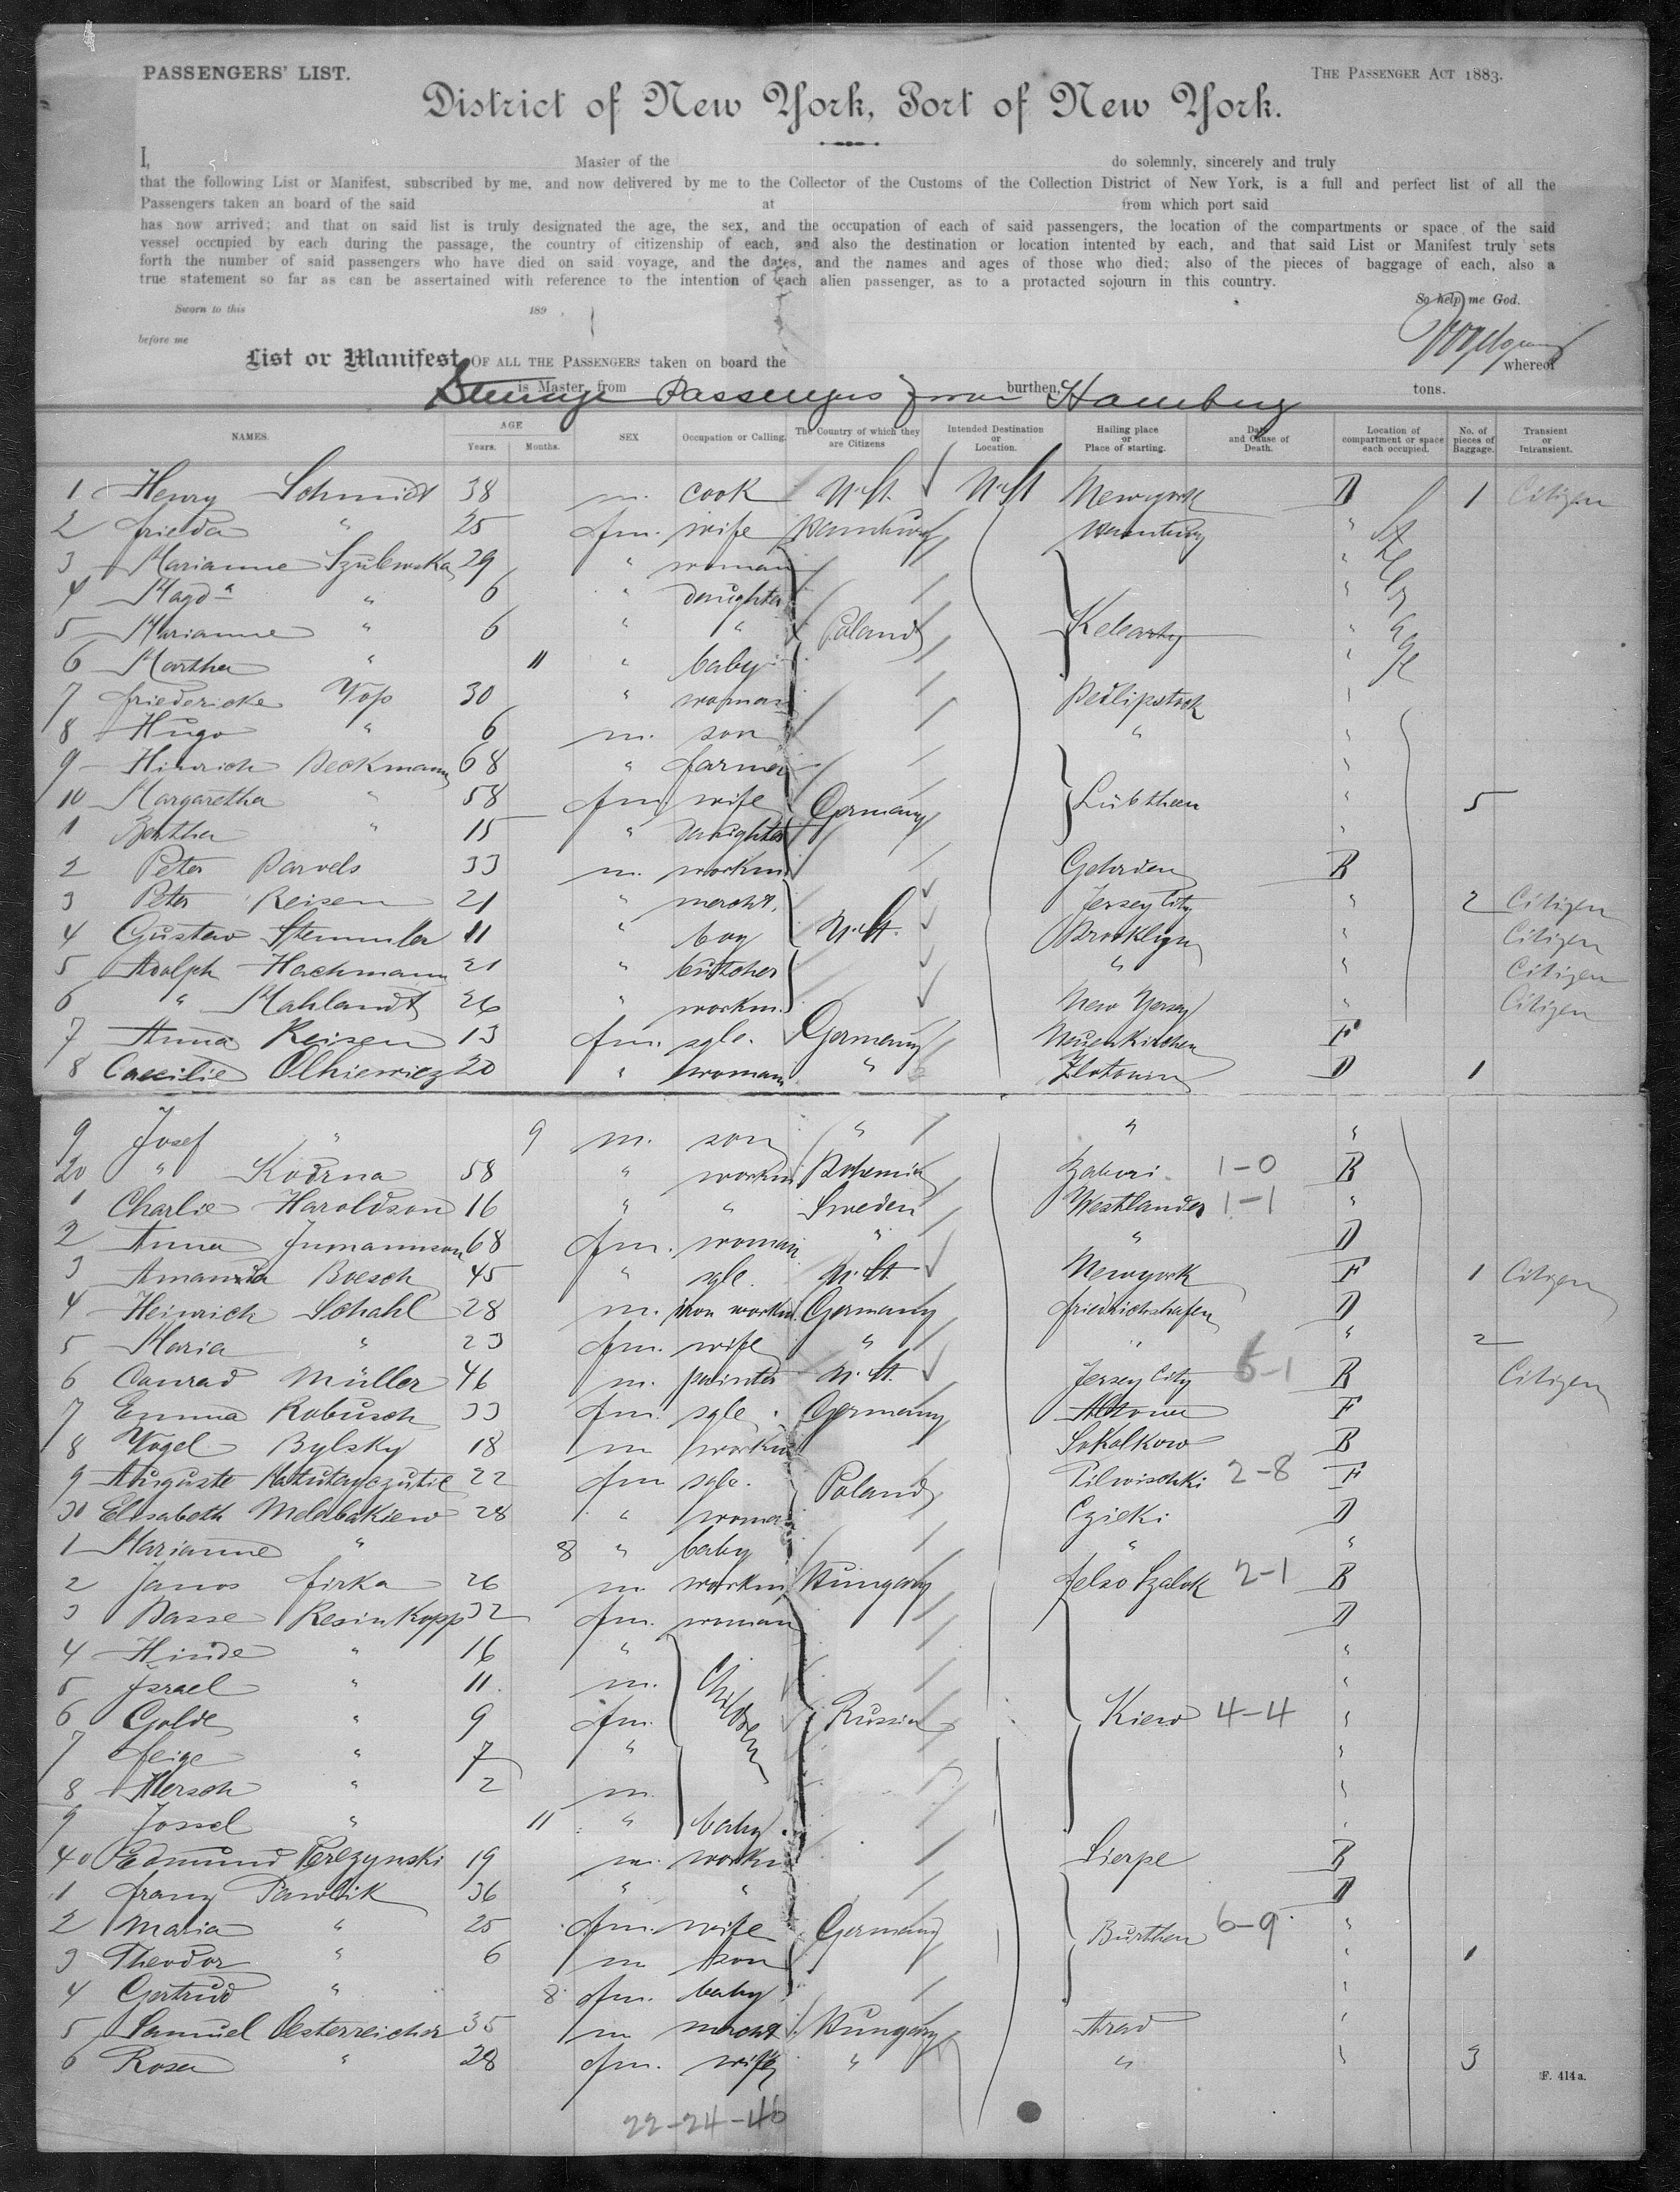 PASSENGERS' LIST. THE PASSENGER ACT 1883.
District of New York, Port of New York.
I, Master of the do solemnly, sincerely and truly
that the following List or Manifest, subscribed by me, and now delivered by me to the Collector of the Customs of the Collection District of New York, is a full and perfect list of all the
Passengers taken an board of the said at from which port said
has now arrived; and that on said list is truly designated the age, the sex, and the occupation of each of said passengers, the location of the compartments or space of the said
vessel occupied by each during the passage, the country of citizenship of each, and also the destination or location intented by each, and that said List or Manifest truly sets
forth the number of said passengers who have died on said voyage, and the dates, and the names and ages of those who died; also of the pieces of baggage of each, also a
true statement so far as can be assertained with reference to the intention of each alien passenger, as to a protacted sojourn in this country.
Sworn to this 189 So help me God.
before me
List or Manifest OF ALL THE PASSENGERS taken on board the whereof
is Master, from burthen, tons.
Steerage Passengers from Hamburg
NAMES. AGE Years. Months. SEX Occupation or Calling. The Country of which they are Citizens Intended Destination or Location. Hailing place or Place of starting. Date and Cause of Death. Location of compartment or space each occupied. No. of pieces of Baggage. Transient or Intransient.
1 Henry Schmidt 38 m. cook N.St. N.St Newyork D 1 Citizen
2 Frieda " 25 fm. wife Hamburg Hamburg "
3 Marianne Szulewska 29 " woman "
4 Magda " 6 " daughter "
5 Marianne " 6 " " Poland "
6 Martha " 11 " baby "
7 Friedericke 30 " woman "
8 Hugo " 6 m. son " "
9 Hinrich Beckmann 68 " farmer "
10 Margaretha " 58 fm. wife Germany Lübtheen " 5
1 Bertha " 15 " daughter "
2 Peter 33 m. workm. Gehrden B
3 Peter Reisen 21 " mercht. Jersey City " 2 Citizen
4 Gustav Stemmler 11 " boy N.St. Brooklyn " Citizen
5 Adolph Hachmann 21 " butcher " " Citizen
6 " Mahlandt 26 " workm. New Yersey " Citizen
7 Anna Reisen 13 fm. sgle. Germany Neuenkirchen F
8 Caecilie 20 " woman " Zlotowin D 1
9 Josef " 9 m. son " " "
20 " Kodrna 58 " workm. Bohemia Zabori 1-0 B
1 Charlie Haroldson 16 " " Sweden Westlander 1-1 "
2 Anna 68 fm. woman " " D
3 Amanda Boesch 45 " sgle. N.St. Newyork F 1 Citizen
4 Heinrich Schahl 28 m. iron workm. Germany Friedrichshafen D
5 Maria " 23 fm. wife " " " 2
6 Conrad Müller 46 m. painter N.St. Jersey City 5-1 B Citizen
7 Emma Robusch 33 fm. sgle. Germany Altona F
8 Vogel Bylsky 18 m workm Sokolkow B
9 Auguste 22 fm sgle. Poland Pilwischki 2-8 F
30 Elisabeth 28 " woman Czicki D
1 Marianne " 8 " baby " "
2 Janos Firka 26 m. workm. Hungary Felso Szalok 2-1 B
3 Basse 32 fm. woman D
4 Hinde " 16 " "
5 Israel " 11. m. Children "
6 Golde " 9 fm. Russia Kiew 4-4 "
7 Feige " 7 " "
8 Hersch " 2 m. "
9 Jossel " 11 " baby. "
40 Edmund 19 m. workm Sierpe B
1 Franz Pawlik 36 " " D
2 Maria " 25 fm. wife Germany Burthen 6-9 "
3 Theodor " 6 m son " 1
4 Gertrud " 8 fm. baby "
5 Samuel Oesterreicher 35 m mercht. Hungary Arad "
6 Rosa " 28 fm. wife " " " 3
F. 414a.
22-24-46